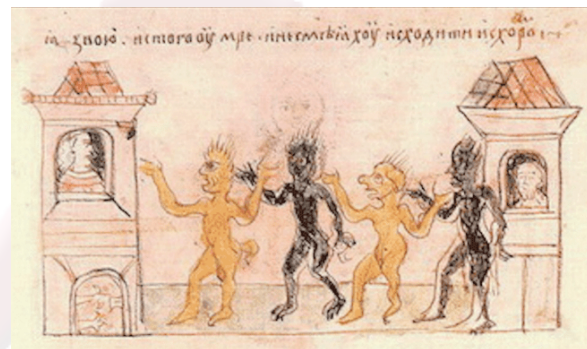 ꙗ звою. и с того оумре. и не смѣꙗхоу исходити исхоро